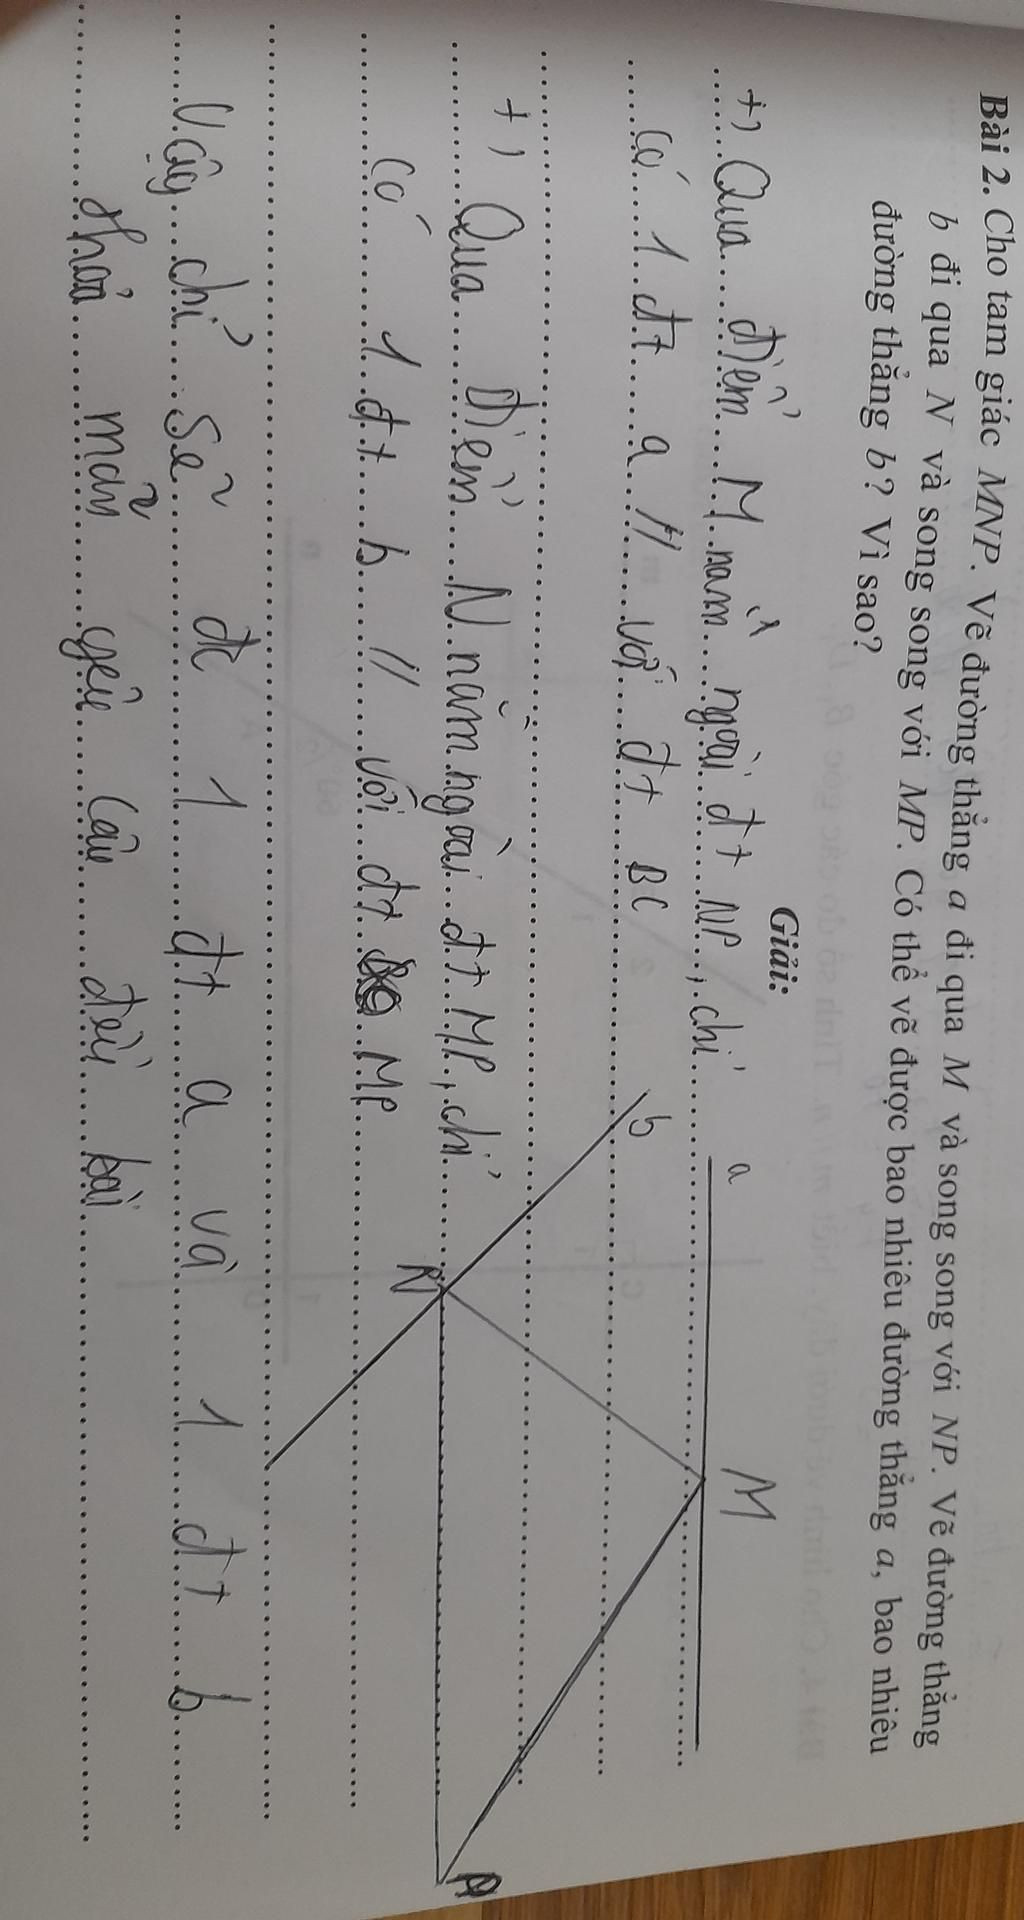 Bài 2. Cho tam giác MNP. Vẽ đường thẳng a đi qua M và song song với NP. Vẽ đường thẳng
b đi qua N và song song với MP. Có thể vẽ được bao nhiêu đường thẳng a, bao nhiêu
đường thẳng b? Vì sao?
Giải:
+) Qua điểm M nằm ngoài đt NP, chỉ
có 1 đt a // với đt BC
+) Qua điểm N nằm ngoài đt MP, chỉ
có 1 đt b // với đt MP
Vậy chỉ sẽ đc 1 đt a và 1 đt b
thỏa mãn yêu cầu đều bài
a
M
b
N
P